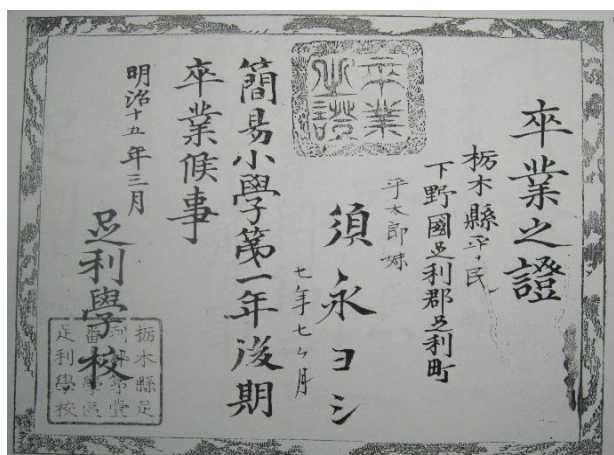 卒業之證
栃木縣平民
下野國足利郡足利町
平太郎妹
須永ヨシ
七年七ヶ月
簡易小學第一年後期
卒業候事
明治十五年三月
足利學校
卒業
之證
栃木縣足
足利學校